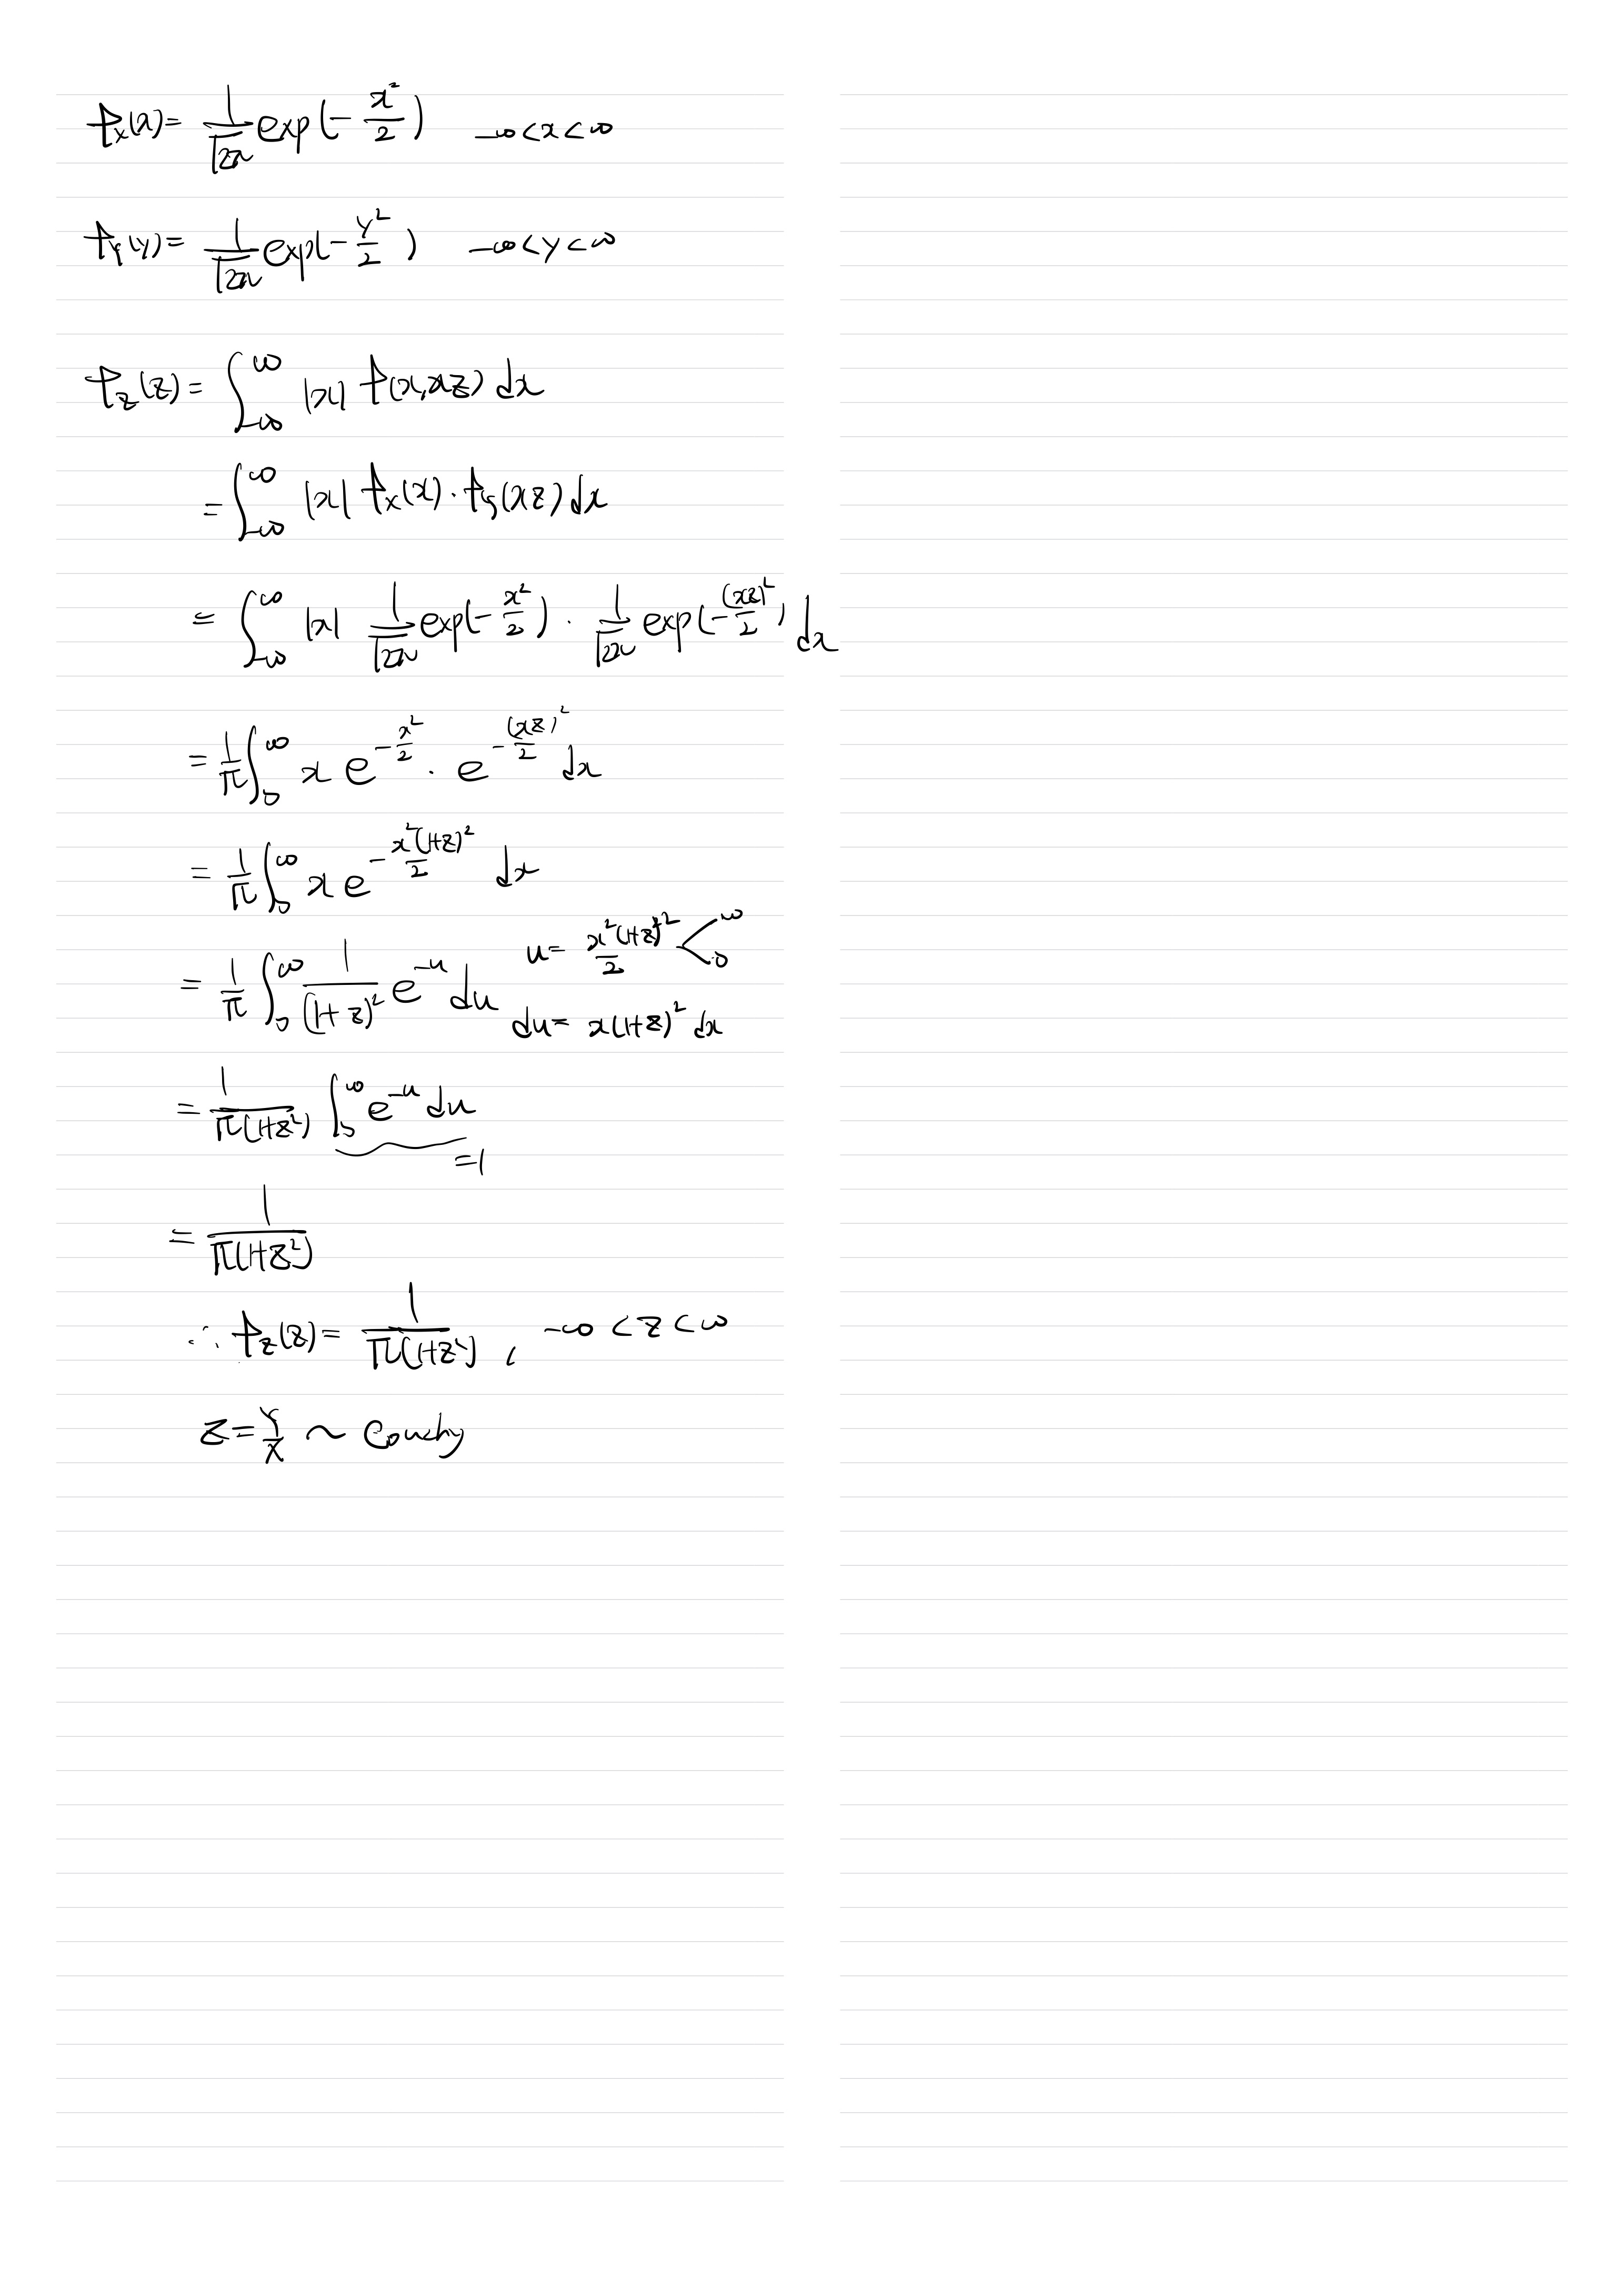 f_X(x) = 1/√(2π) exp(-x²/2)   -∞ < x < ∞
f_Y(y) = 1/√(2π) exp(-y²/2)   -∞ < y < ∞
f_Z(z) = ∫_{-∞}^{∞} |x| f(x, xz) dx
= ∫_{-∞}^{∞} |x| f_X(x) · f_Y(xz) dx
= ∫_{-∞}^{∞} |x| 1/√(2π) exp(-x²/2) · 1/√(2π) exp(-(xz)²/2) dx
= 1/π ∫_0^∞ x e^{-x²/2} · e^{-(xz)²/2} dx
= 1/π ∫_0^∞ x e^{-x²(1+z)²/2} dx
= 1/π ∫_0^∞ 1/(1+z)² e^{-u} du   u = x²(1+z)²/2 < ∞ 0
du = x(1+z)² dx
= 1/(π(1+z²)) ∫_0^∞ e^{-u} du
=1
= 1/(π(1+z²))
∴ f_Z(z) = 1/(π(1+z²)) , -∞ < z < ∞
Z = Y/X ~ Cauchy